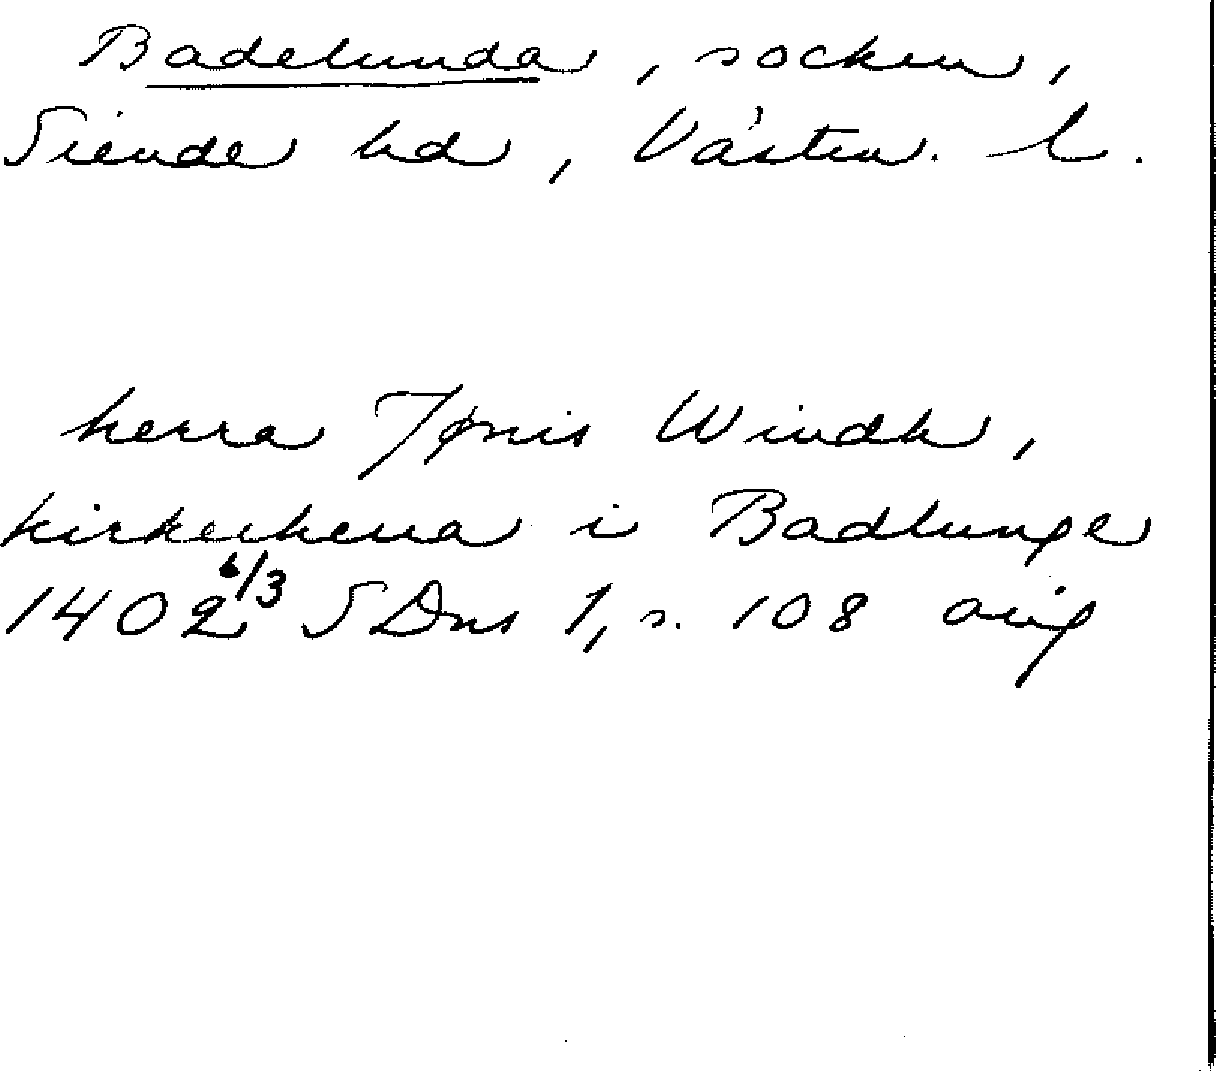 Badelunda, socken,
Siende hd, Västm. l.
herra Jønis Windh,
kirkeherra i Badlunge
1402 6/3 SDns 1, s. 108 orig